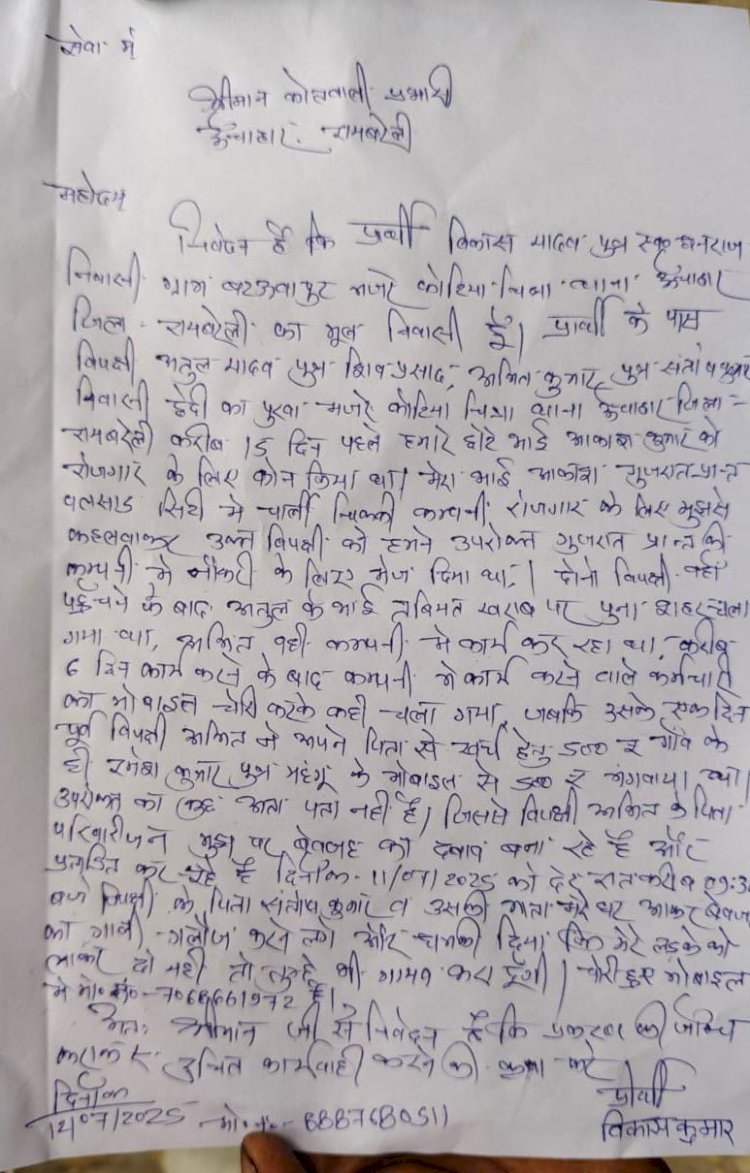 सेवा में
श्रीमान कोतवाली प्रभारी
ऊँचाहार रायबरेली
महोदय
निवेदन है कि प्रार्थी विकास यादव पुत्र स्व० धनराज
निवासी ग्राम मजरे कोटिया चित्रा थाना ऊँचाहार
जिला रायबरेली का मूल निवासी हूँ। प्रार्थी के पास
विपक्षी अतुल यादव पुत्र शिव प्रसाद, अमित कुमार पुत्र संतोष कुमार
निवासी का पुरवा मजरे कोटिया चित्रा थाना ऊँचाहार जिला-
रायबरेली करीब 15 दिन पहले हमारे छोटे भाई आकाश कुमार को
रोजगार के लिए फोन किया था। मेरा भाई आकाश गुजरात प्रान्त
वलसाड सिटी मे चार्ली कम्पनी रोजगार के लिए मुझसे
कहलवाकर उक्त विपक्षी को हमने उपरोक्त गुजरात प्रान्त की
कम्पनी मे नौकरी के लिए भेज दिया था,। दोनो विपक्षी वहाँ
पहुँचने के बाद अतुल के भाई तबियत खराब पर पुनः चला
गया था, अमित वही कम्पनी मे कार्य कर रहा था, करीब
6 दिन कार्य करने के बाद कम्पनी मे कार्य करने वाले कर्मचारी
का मोबाइल चोरी करके कही चला गया, जबकि उसके एक दिन
पूर्व विपक्षी अमित ने अपने पिता से खर्च हेतु 500 रु गाँव के
ही रमेश कुमार पुत्र महंगू के मोबाइल से 500 रु मंगवाया था।
उपरोक्त का कुछ अता पता नही है। जिससे विपक्षी अमित के पिता
परिवारीजन मुझ पर बेवजह का दबाव बना रहे है और
प्रताडित कर रहे है दिनांक-11/07/2025 को देर रात करीब 09:30
बजे विपक्षी के पिता संतोष कुमार व उसकी माता मेरे घर आकर बेवजह
का गाली-गलौज करने लगे और धमकी दिया कि मेरे लड़के को
लाकर दो नही तो तुम्हे भी गायब करा दूँगी। चोरी हुए मोबाइल
मे मो० नं०-7068661972 है।
अतः श्रीमान जी से निवेदन है कि प्रकरण की जाँच
कराकर उचित कार्यवाही करने की कृपा करे
दिनांक
12/07/2025 मो० नं०- 8887680511
प्रार्थी
विकास कुमार